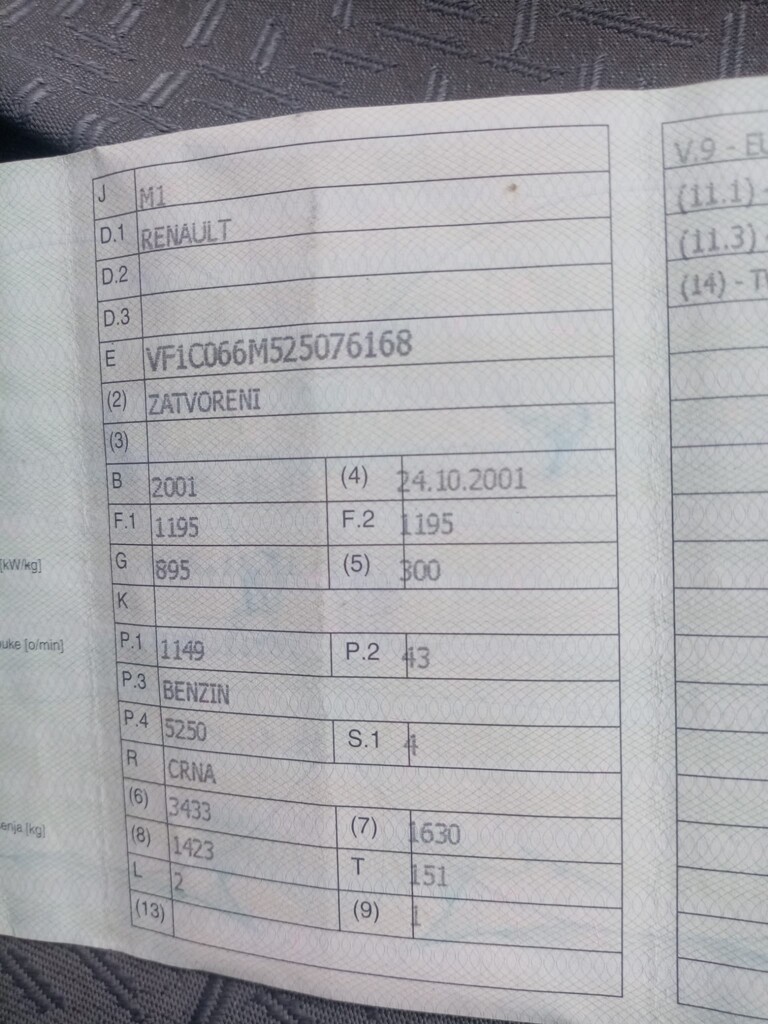 J M1
D.1 RENAULT
D.2
D.3
E VF1C066M525076168
(2) ZATVORENI
(3)
B 2001 (4) 24.10.2001
F.1 1195 F.2 1195
G 895 (5) 300
K
P.1 1149 P.2 43
P.3 BENZIN
P.4 5250 S.1 4
R CRNA
(6) 3433 (7) 1630
(8) 1423 T 151
L 2 (9) 1
(13)
[kW/kg]
uke [o/min]
enja [kg]
V.9 - EU
(11.1) -
(11.3) -
(14) -